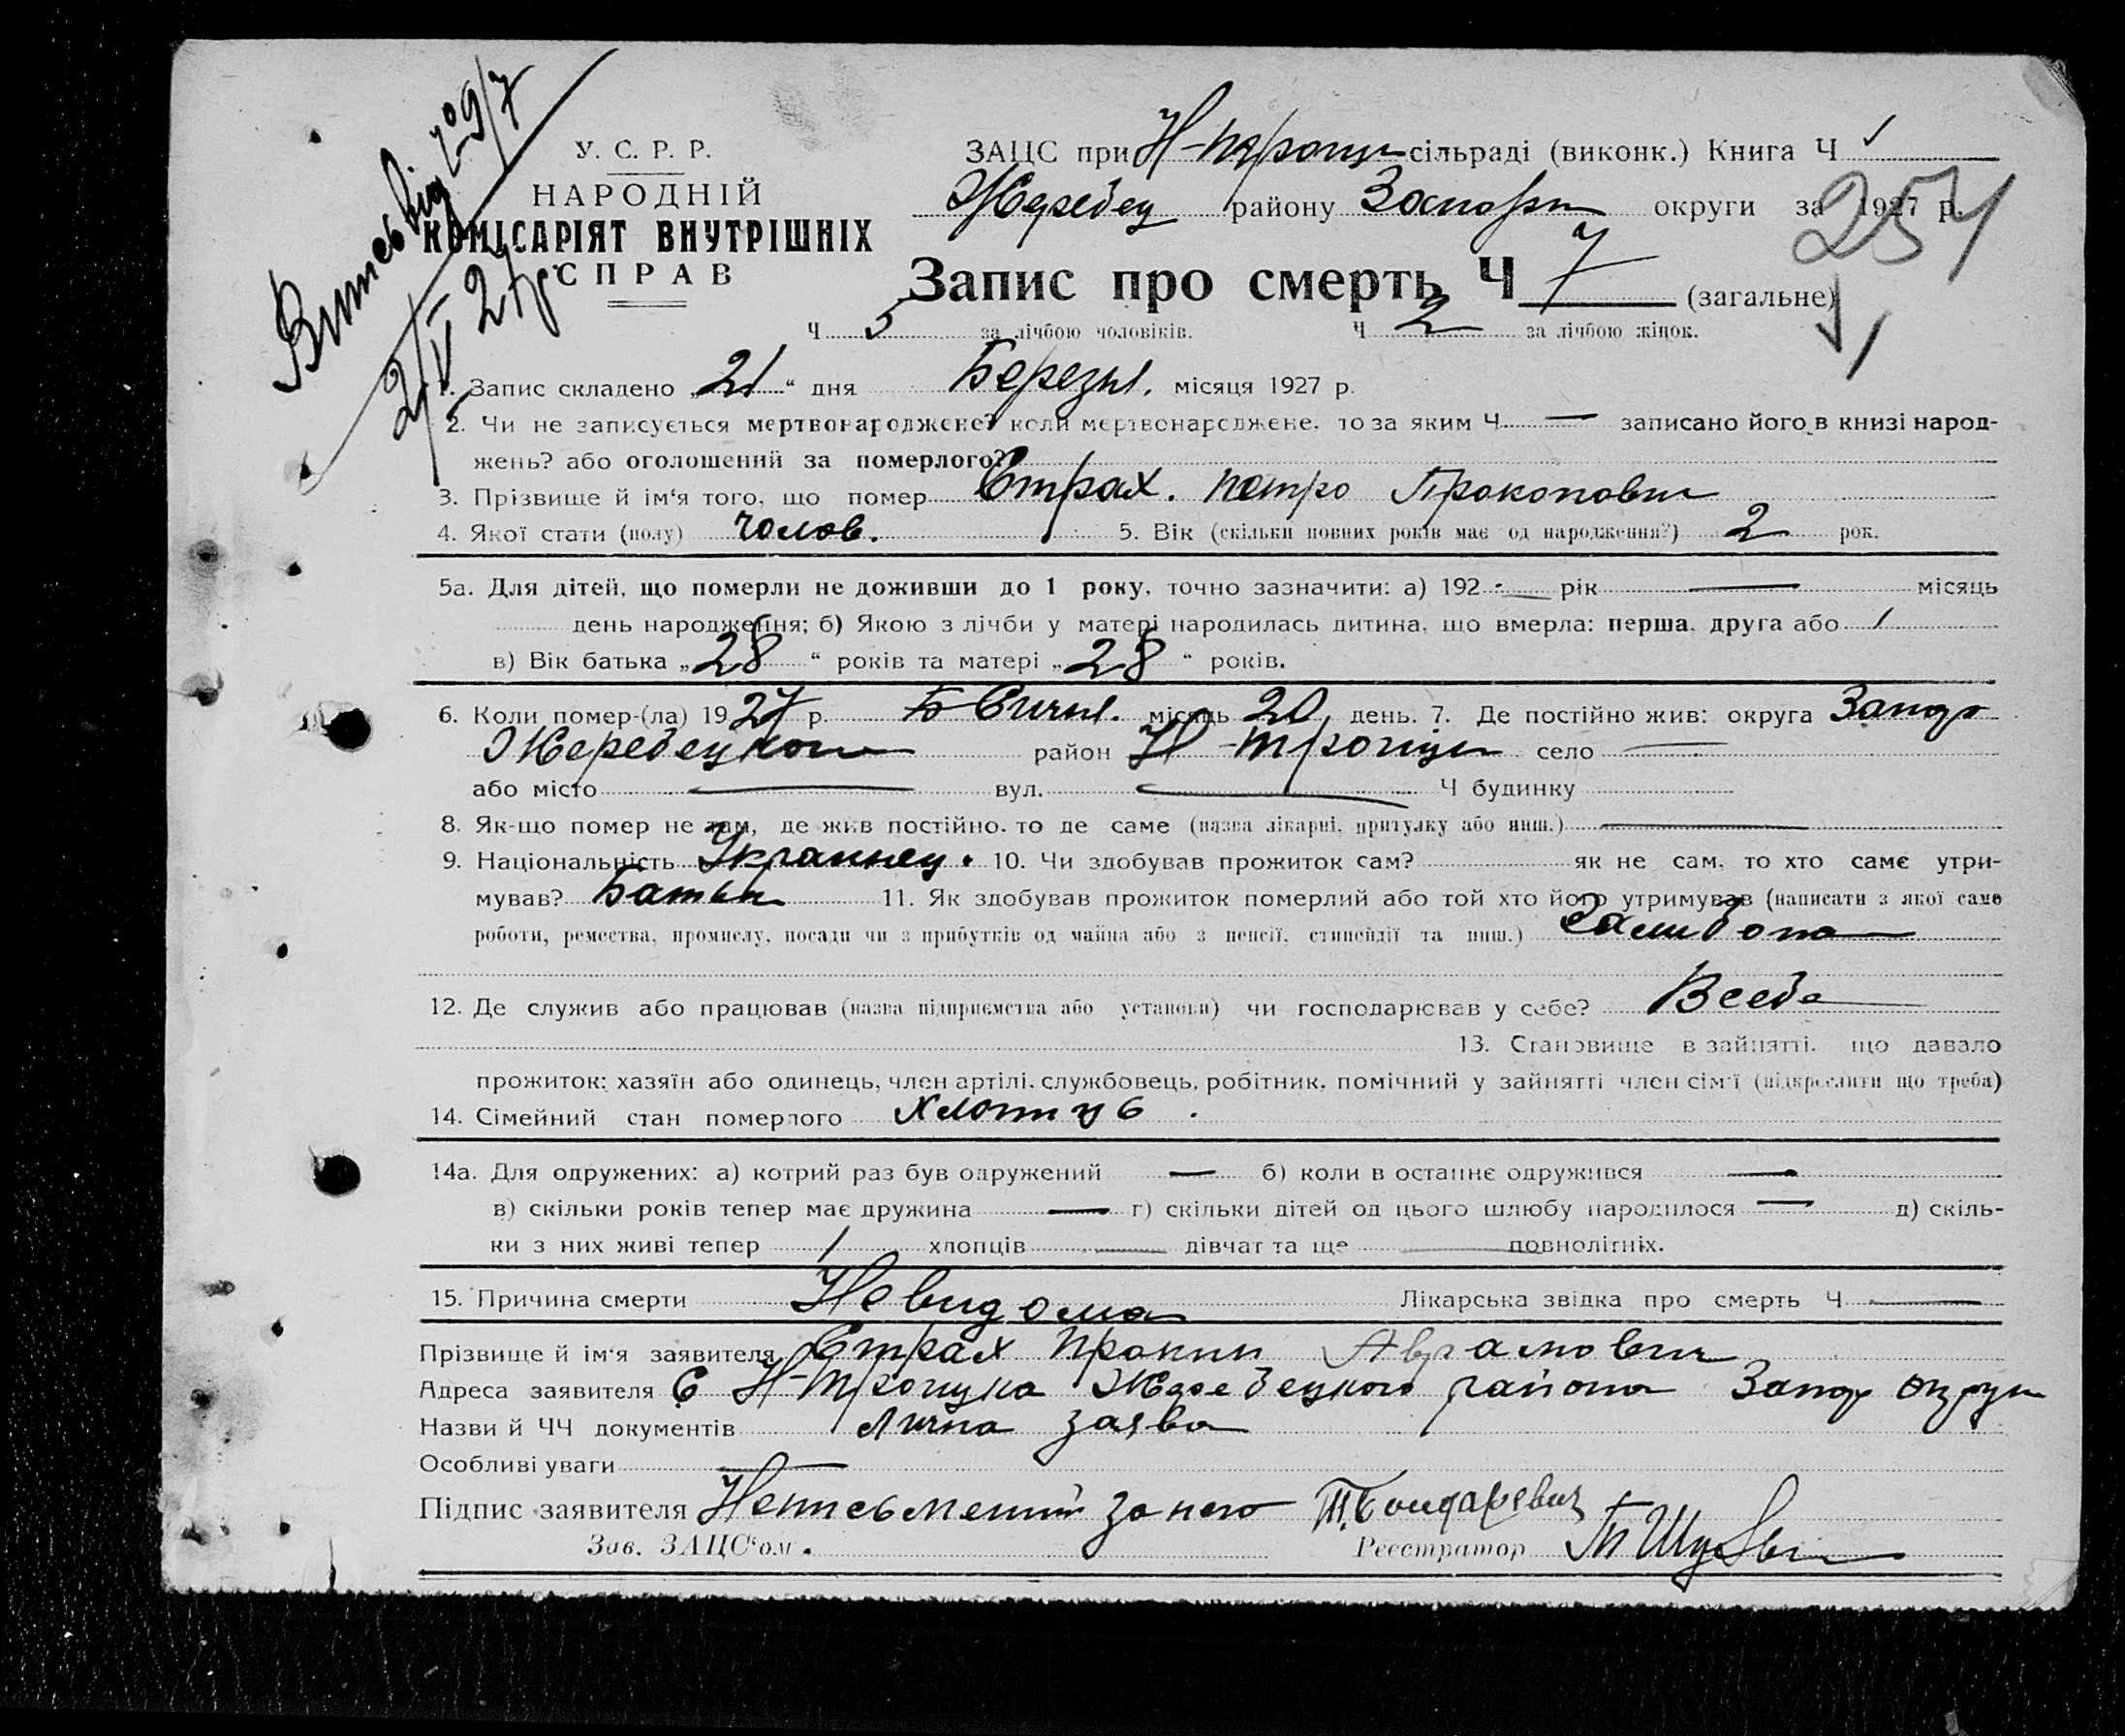 У. С. Р. Р.
НАРОДНІЙ
КОМІСАРІЯТ ВНУТРІШНІХ
СПРАВ
ЗАЦС при сільраді (виконк.) Книга Ч
Жеребец району округи за 1927 р.
257
Запис про смерть Ч 7 (загальне)
Ч 5 за лічбою чоловіків. Ч 2 за лічбою жінок.
1. Запис складено „21“ дня Березня. місяця 1927 р.
2. Чи не записується мертвонароджене? коли мертвонароджене, то за яким Ч — записано його в книзі народ-
жень? або оголошений за померлого?
3. Прізвище й ім‘я того, що помер Страх. Петро Прокопович
4. Якої стати (полу) чолов. 5. Вік (скільки повних років має од народження?) 2 рок.
5а. Для дітей, що померли не доживши до 1 року, точно зазначити: а) 192 — рік — місяць
день народження; б) Якою з лічби у матері народилась дитина, що вмерла: перша, друга або 1
в) Вік батька „28“ років та матері „28“ років.
6. Коли помер-(ла) 1927 р. Січня. місяць 20 день. 7. Де постійно жив: округа Запор
район Н-Троицк село —
або місто — вул. — Ч будинку
8. Як-що помер не там, де жив постійно, то де саме (назва лікарні, притулку або инш.) —
9. Національність Украинец. 10. Чи здобував прожиток сам? як не сам, то хто саме утри-
мував? Батьки 11. Як здобував прожиток померлий або той хто його утримував (написати з якої саме
роботи, ремества, промислу, посади чи з прибутків од майна або з пенсії, стипендії та инш.)
12. Де служив або працював (назва підприємства або установи) чи господарював у себе? Всебе
13. Становище в зайнятті, що давало
прожиток: хазяїн або одинець, член артілі, службовець, робітник, помічний у зайнятті член сім‘ї (підкреслити що треба)
14. Сімейний стан померлого хлопець.
14а. Для одружених: а) котрий раз був одружений — б) коли в останнє одружився —
в) скільки років тепер має дружина — г) скільки дітей од цього шлюбу народилося — д) скіль-
ки з них живі тепер 1 хлопців — дівчат та ще — повнолітніх.
15. Причина смерти Невидома Лікарська звідка про смерть Ч —
Прізвище й ім‘я заявителя Страх Прокип Аврамович
Адреса заявителя С Н-Троицка Жеребецкого района Запор округи
Назви й ЧЧ документів Лична заява
Особливі уваги —
Підпис заявителя за него Т. Бондаревич
Зав. ЗАЦС‘ом. Реєстратор